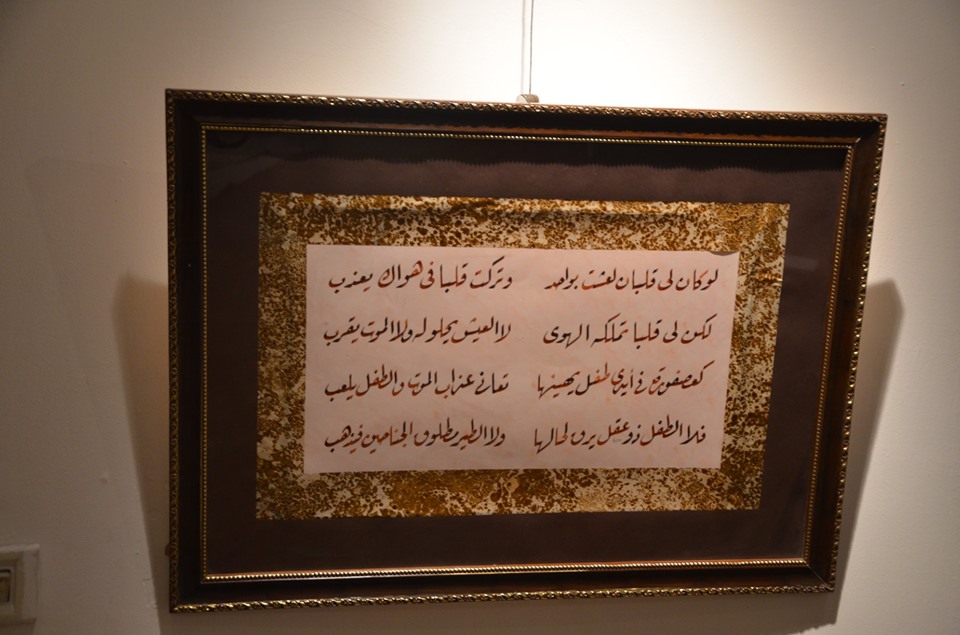 لو كان لي قلبان لعشت بواحد وتركت قلبا في هواك يعذب
لكن لي قلبا تملكه الهوى لا العيش يحلو له ولا الموت يقرب
كعصفورة في أيدي طفل يهينها تعاني عذاب الموت والطفل يلعب
فلا الطفل ذو عقل يرق لحالها ولا الطير مطلوق الجناحين فيذهب